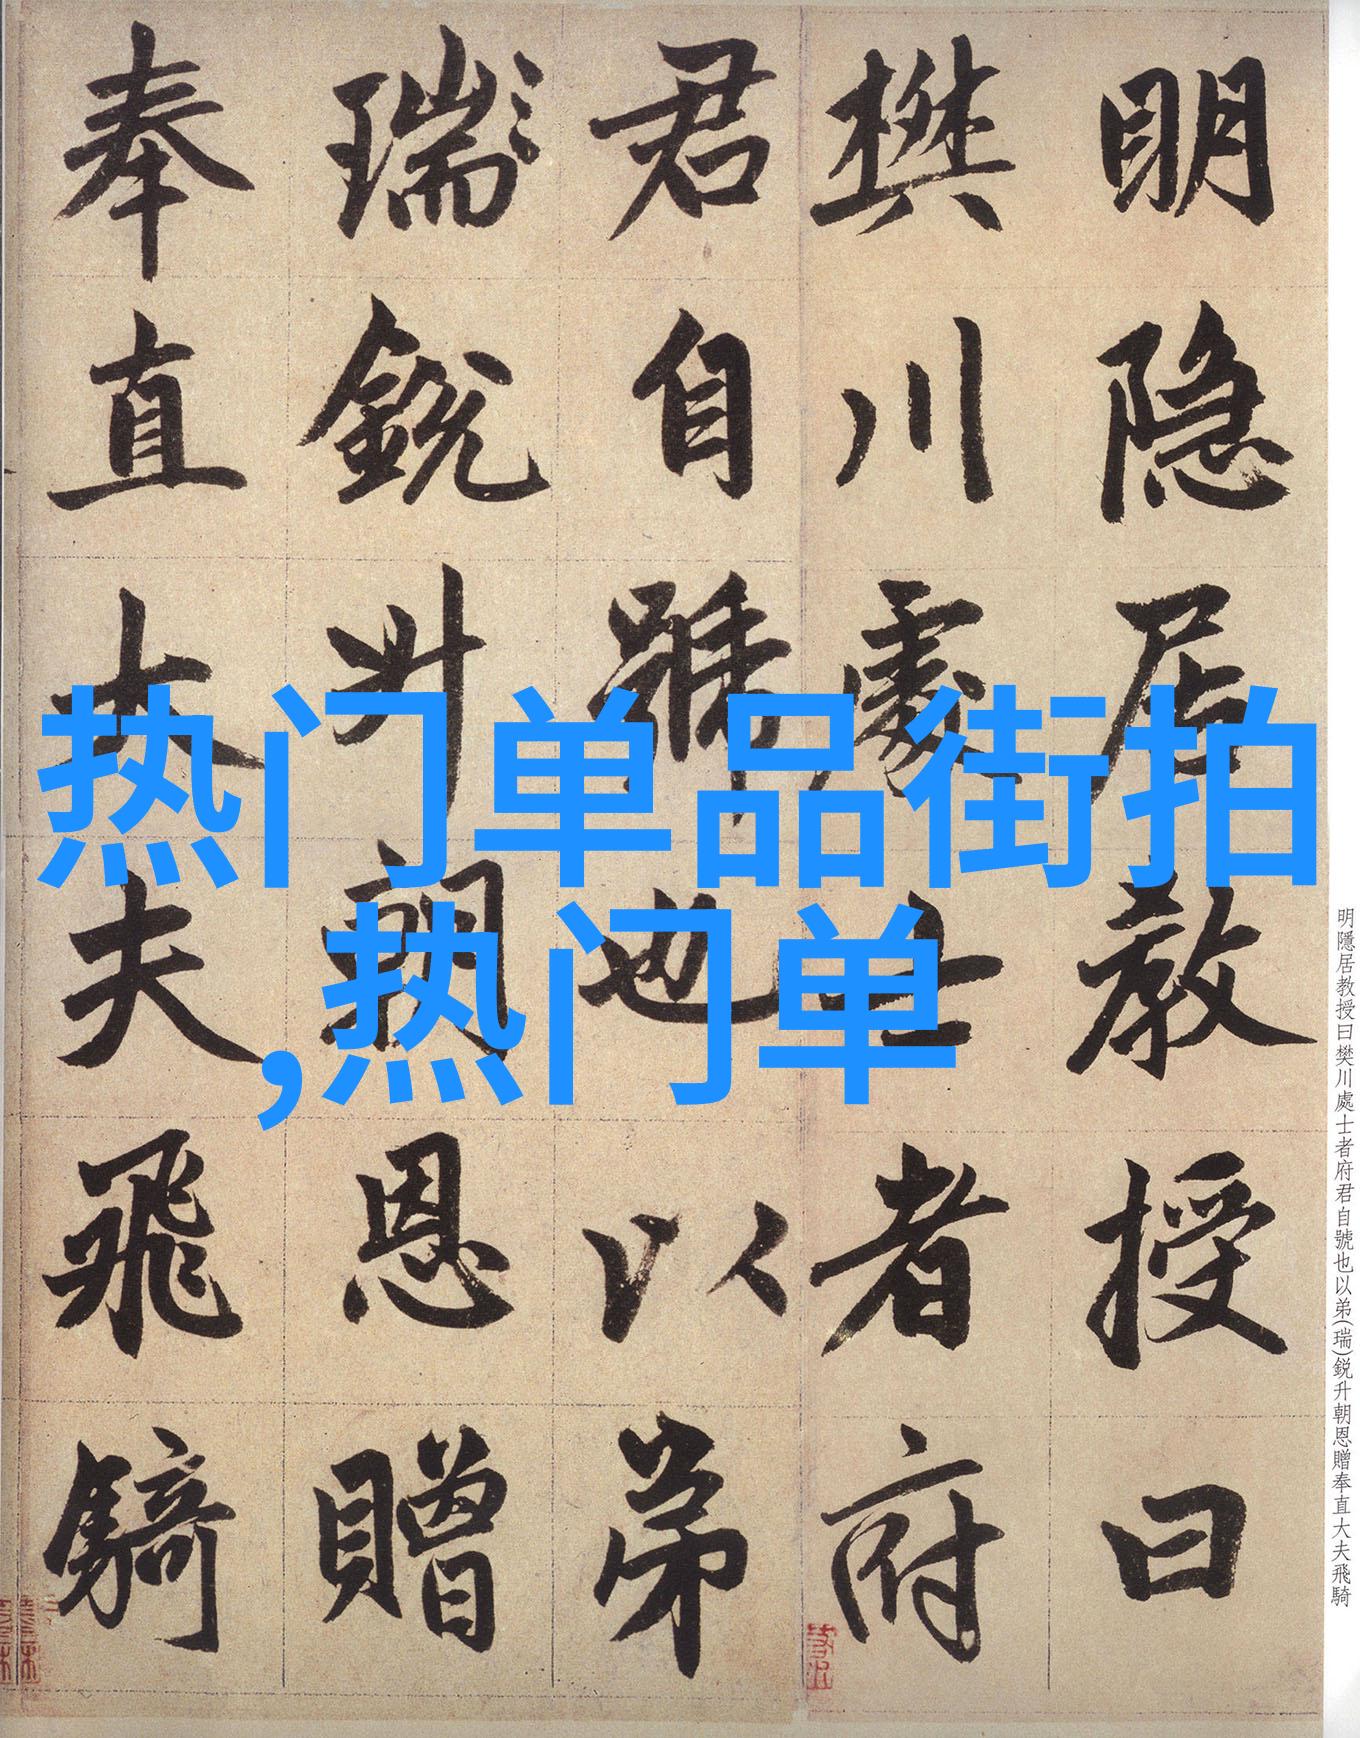 明隐居教授曰
樊川處士者府
君自號也以弟
瑞銳升朝恩贈
奉直大夫飛騎
热门单品街拍
,热门单
明隱居教授曰樊川處士者府君自號也以弟(瑞)銳升朝恩贈奉直大夫飛騎